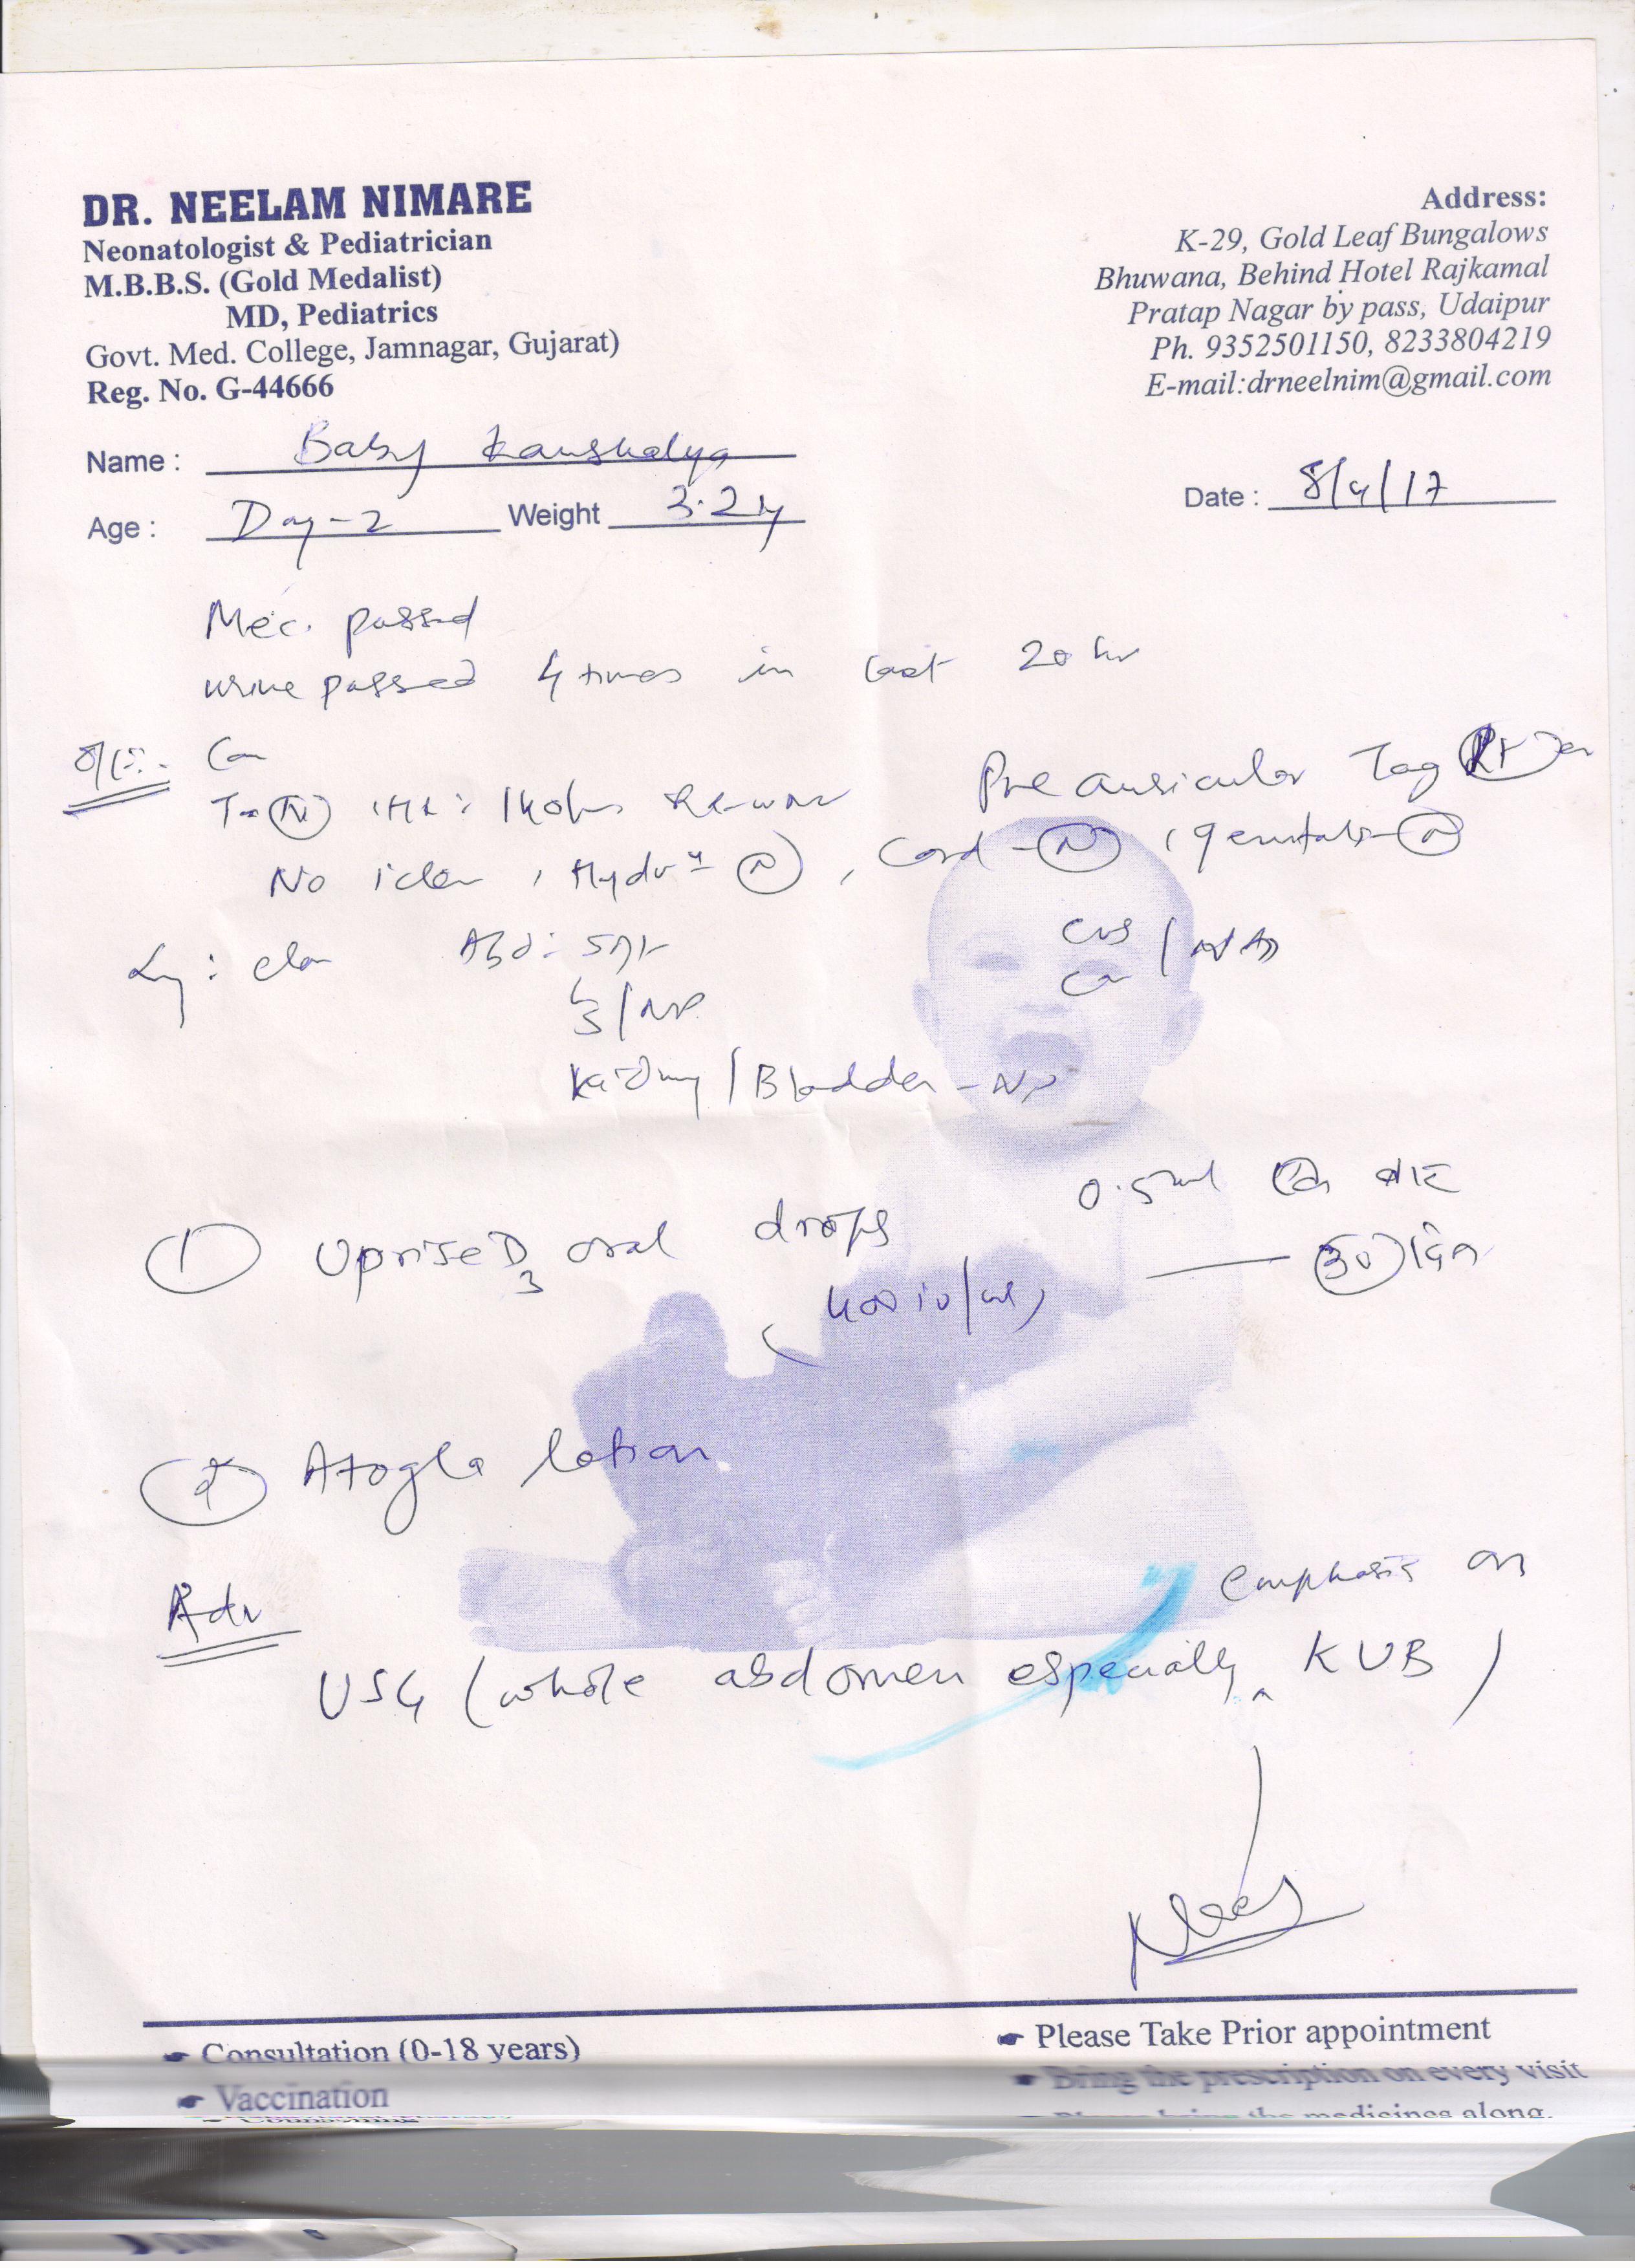 DR. NEELAM NIMARE
Neonatologist & Pediatrician
M.B.B.S. (Gold Medalist)
MD, Pediatrics
Govt. Med. College, Jamnagar, Gujarat)
Reg. No. G-44666
Address:
K-29, Gold Leaf Bungalows
Bhuwana, Behind Hotel Rajkamal
Pratap Nagar by pass, Udaipur
Ph. 9352501150, 8233804219
E-mail:drneelnim@gmail.com
Name : Baby Kaushalya
Date : 8/4/17
Age : Day-2 Weight 3.2
Mec. passed
urine passed 4 times in last 20 hr
O/E:-
Preauricular Tag Rt
T- N
No , Hydrn N , Cord - N , genitals - N
Abd: soft
CVS
L/S/NP
Kidney/Bladder - NP
① Uprise D3 oral drops 0.5ml
(400 iu/ml) 30
② Atogla lotion
Adv
USG (whole abdomen especially emphasis on KUB)
Consultation (0-18 years)
Please Take Prior appointment
Vaccination
Bring the prescription on every visit
the medicines along.